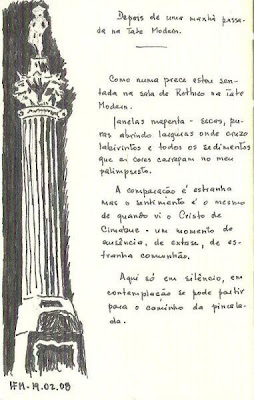 Depois de uma manhã passa-
da na Tate Modern.
Como numa prece estou sen-
tada na sala de Rothko na Tate
Modern.
Janelas magenta - secas, pu-
ras abrindo larguras onde cruzo
labirintos e todos os sedimentos
que as cores carregam no meu
palimpsesto.
A comparação é estranha
mas o sentimento é o mesmo
de quando vi o Cristo de
Cimabue - um momento de
ausência, de êxtase, de es-
tranha comunhão.
Aqui só em silêncio, em
contemplação se pode partir
para o caminho da pincela-
da.
IFM-19.02.08